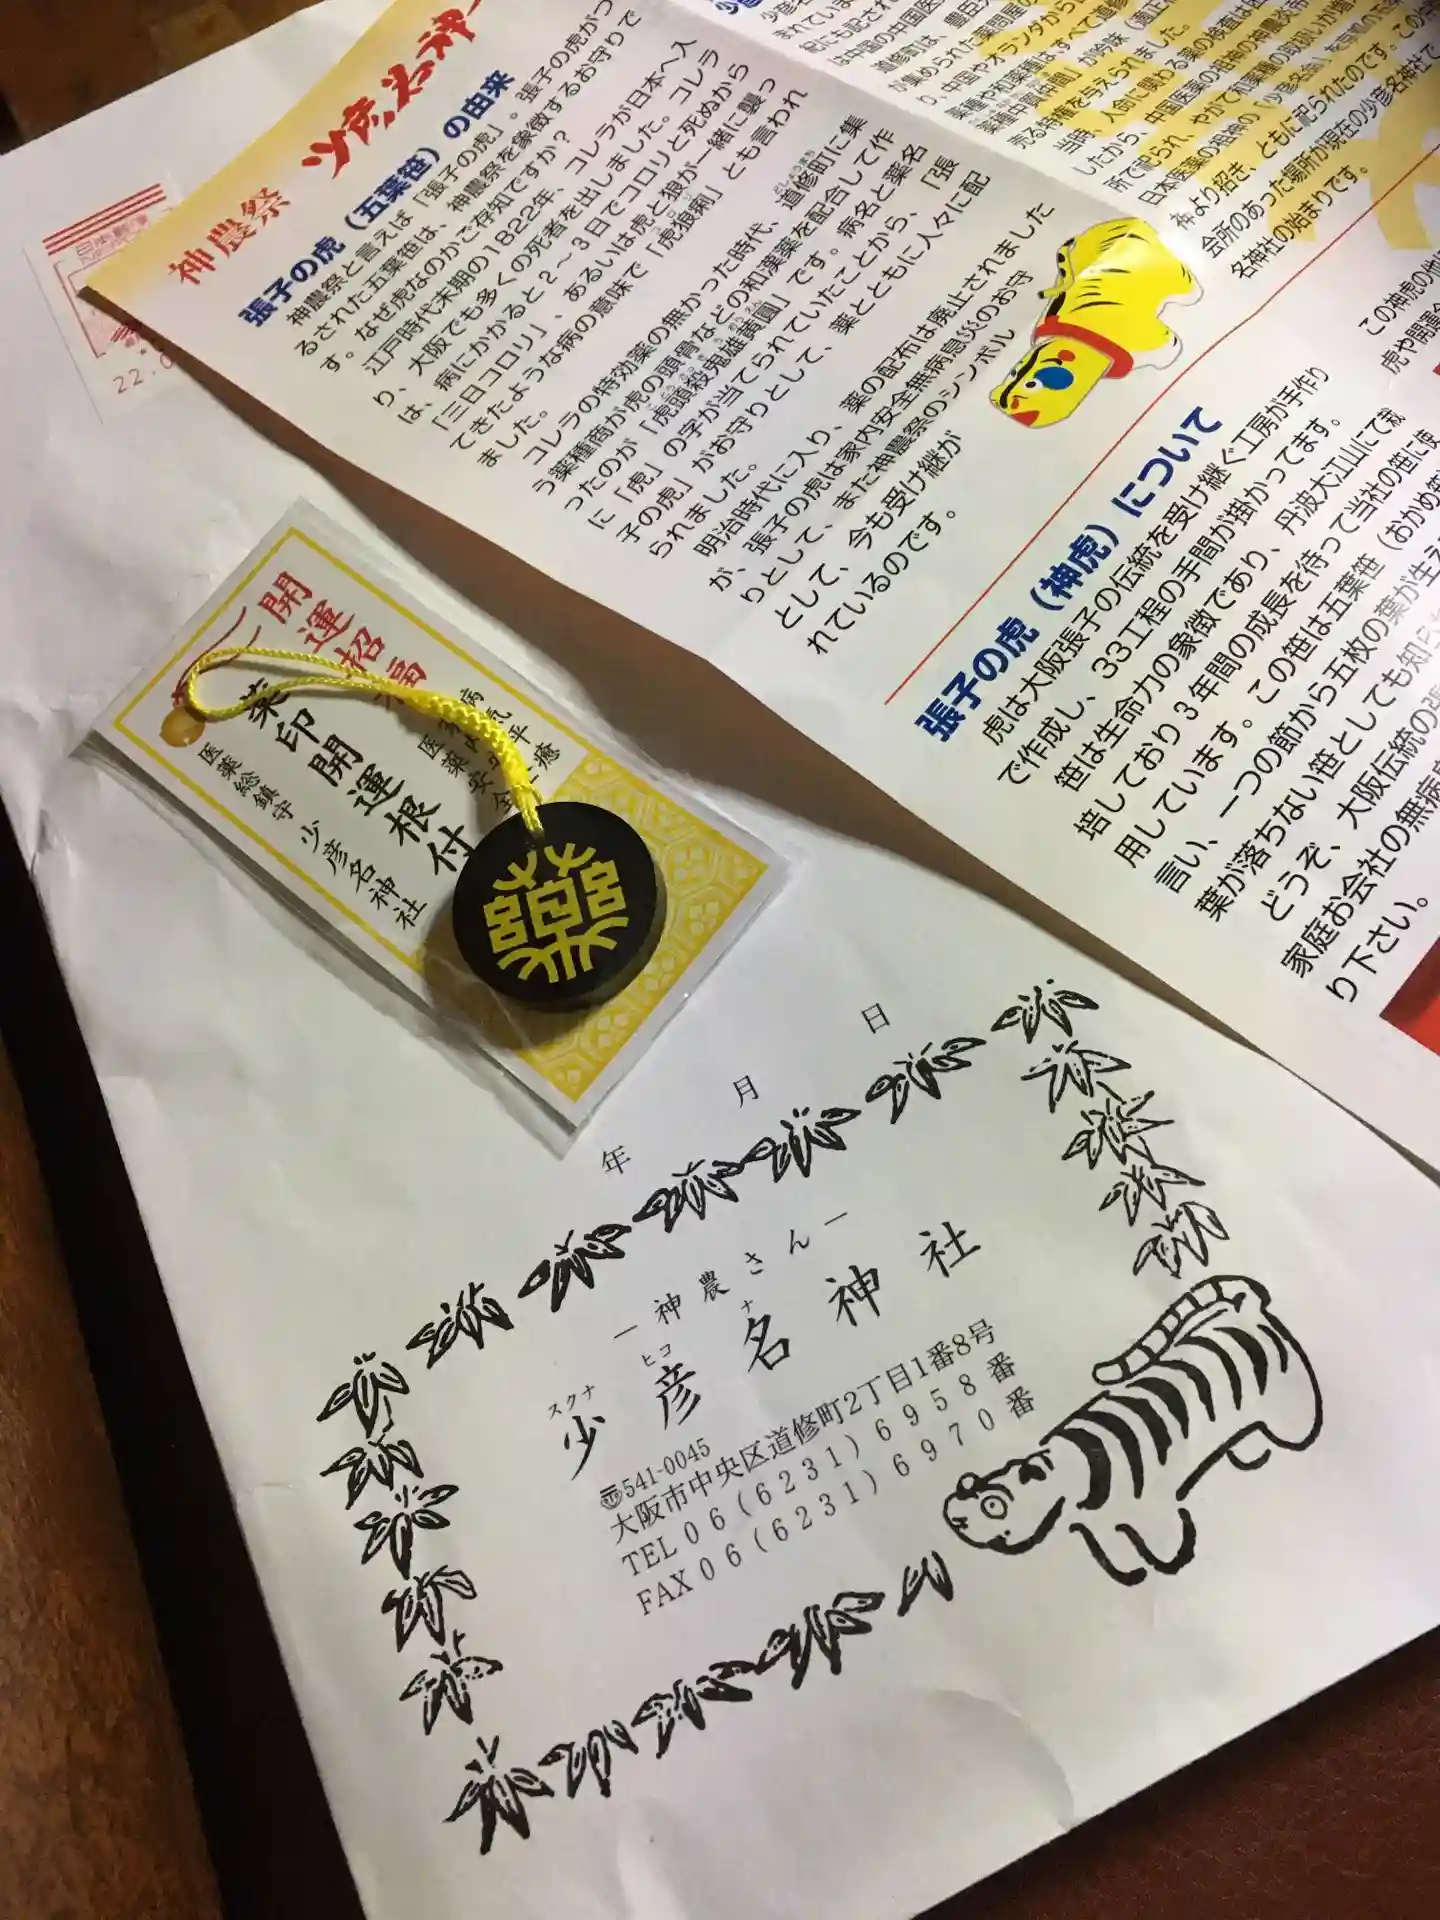 神農祭
少彦名神
張子の虎（五葉笹）の由来
神農祭と言えば「張子の虎」。張子の虎がつ
るされた五葉笹は、神農祭を象徴するお守りで
す。なぜ虎なのかご存知ですか？
江戸時代末期の1822年、コレラが日本へ入
り、大阪でも多くの死者を出しました。コレラ
は、病にかかると2～3日でコロリと死ぬから
「三日コロリ」、あるいは虎と狼が一緒に襲っ
てきたような病の意味で「虎狼痢」とも言われ
ました。
コレラの特効薬の無かった時代、道修町に集
う薬種商が虎の頭骨などの和漢薬を配合して作
ったのが「虎頭殺鬼雄黄圓」です。病名と薬名
に「虎」の字が当てられていたことから、「張
子の虎」がお守りとして、薬とともに人々に配
られました。
明治時代に入り、薬の配布は廃止されました
が、張子の虎は家内安全無病息災のお守
りとして、また神農祭のシンボル
として、今も受け継が
れているのです。
張子の虎（神虎）について
虎は大阪張子の伝統を受け継ぐ工房が手作り
で作成し、33工程の手間が掛かってます。
笹は生命力の象徴であり、丹波大江山にて栽
培しており3年間の成長を待って当社の笹に使
用しています。この笹は五葉笹（おかめ笹
言い、一つの節から五枚の葉が生え
葉が落ちない笹としても知ら
どうぞ、大阪伝統の張
家庭お会社の無病息
り下さい。
は中国の中国医
道修町は、豊臣
が集められた薬問屋の
り、中国やオランダから
薬種や和薬種は、すべて道修
薬種中買仲間」が吟味（適正
売る特権を与えられました。
当時、人命に関わる薬の検査は困
したから、中国医薬の祖神の神農炎帝
所で祀られ、やがて和薬種の取扱いが増え
日本医薬の祖神の「少彦名命」を
神より招き、ともに祀られたのです。この
会所のあった場所が現在の少彦名神社で
名神社の始まりです。
この神虎の他
虎や開運
22.0
開運招福
薬印開運根付
医薬総鎮守 少彦名神社
年 月 日
―神農さん―
スクナ ヒコ ナ
少彦名神社
〒541-0045
大阪市中央区道修町2丁目1番8号
TEL 06(6231)6958番
FAX 06(6231)6970番